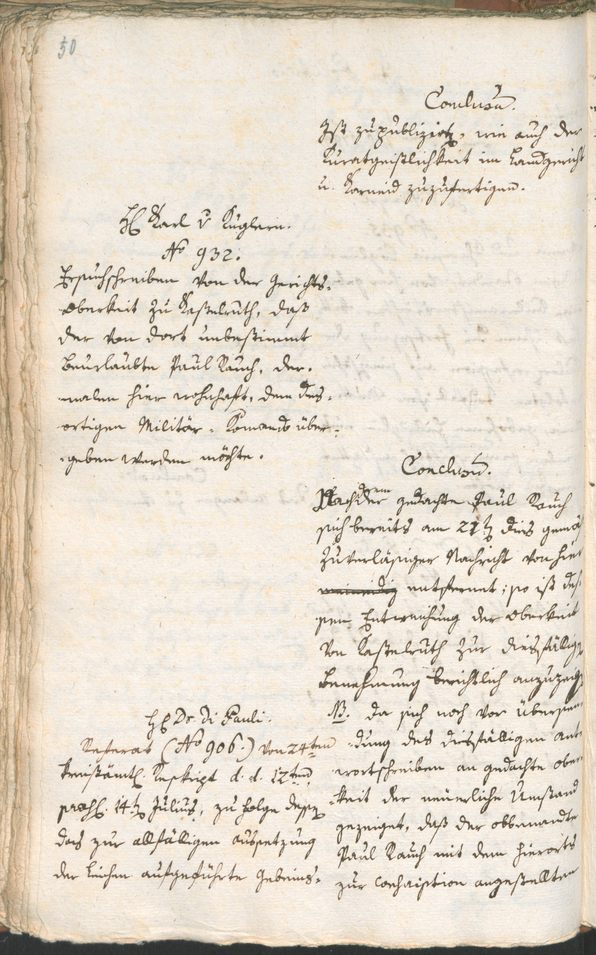 50
Conclusũ.
Ist zu publiziren, wie auch der
Kuratgeistlichkeit im Landgericht
u. Karneid zuzufertigen.
H Karl v Kuglern.
No 932.
Ersuchschreiben von der Gerichts-
Oberkeit zu Kastelruth, daß
der von dort unbestimmt
beurlaubte Paul Rauch, der-
malen hier wohnhaft, dem dies-
ortigen Militär-Komando über-
geben werden möchte.
Conclusũ.
Nachdem gedachte Paul Rauch
sich bereits am 21t dies gemäß
zuverläßiger Nachricht von hier
entfernt; so ist des-
sen Entweichung der Oberkeit
von Kastelruth zur diesfälligen
Benehmung berichtlich anzuzeigen
NB. Da sich noch vor Übersen-
dung des diesfälligen Ant-
wortschreiben an gedachte Ober-
keit der neuerliche Umstand
gezeiget, daß der obbenannte
Paul Rauch mit dem hierorts
zur Conscription angestellten
H Dr. Di Pauli.
Referat (No 906.) von 24ten
kreisämtl. Reskript d. d. 12ten
praes. 14t Julius, zu Folge dessen
das zur allfälligen Aussetzung
der Leichen aufgeführte Gebäus-